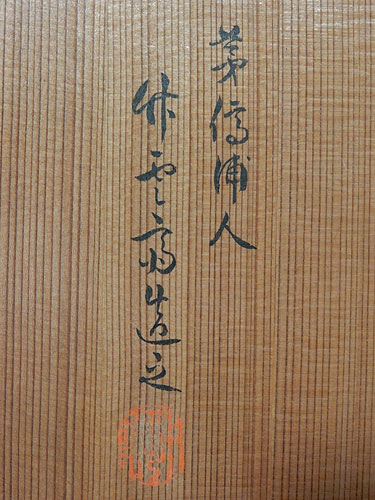 茅渟浦人
竹雲斎造之